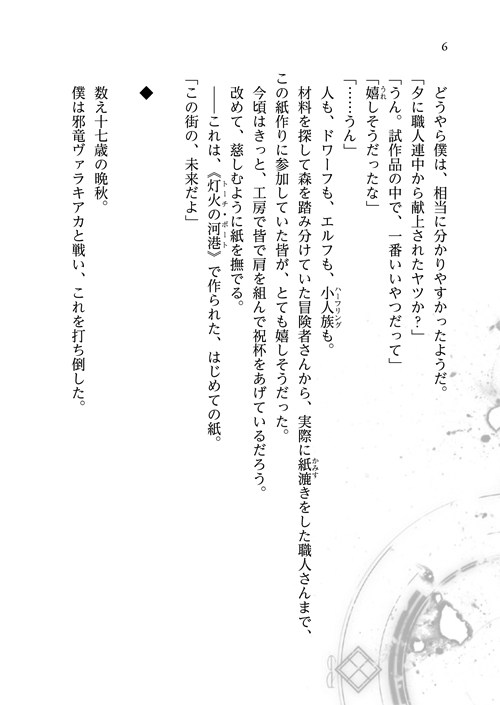 6
どうやら僕は、相当に分かりやすかったようだ。
「夕に職人連中から献上されたヤツか?」
「うん。試作品の中で、一番いいやつだって」
「嬉しそうだったな」
「……うん」
人も、ドワーフも、エルフも、小人族も。
材料を探して森を踏み分けていた冒険者さんから、実際に紙漉きをした職人さんまで、
この紙作りに参加していた皆が、とても嬉しそうだった。
今頃はきっと、工房で皆で肩を組んで祝杯をあげているだろう。
改めて、慈しむように紙を撫でる。
――これは、《灯火の河港》で作られた、はじめての紙。
「この街の、未来だよ」
◆
数え十七歳の晩秋。
僕は邪竜ヴァラキアカと戦い、これを打ち倒した。
うれ
ハーフリング
かみす
トーチ・ポート